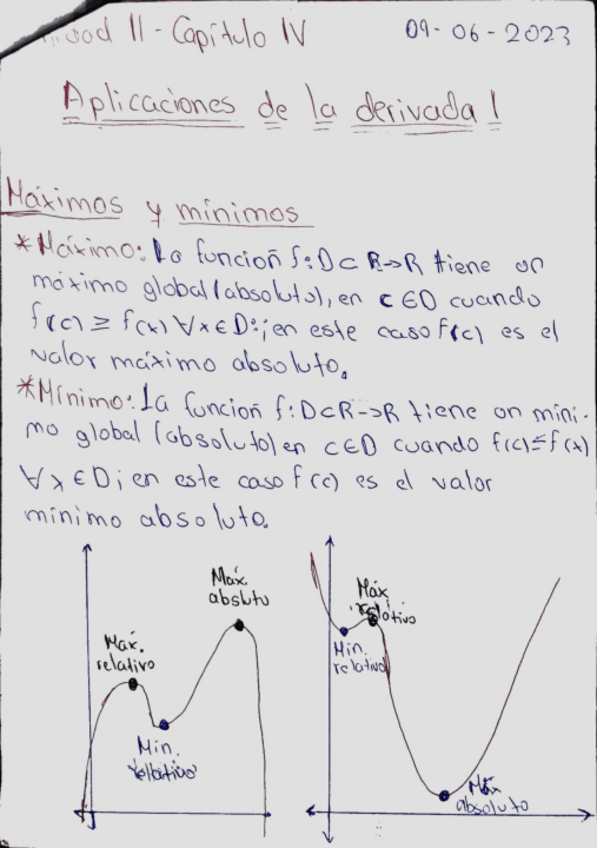 II - Capítulo IV 09-06-2023
Aplicaciones de la derivada I
Máximos y mínimos
*Máximo: La función f: D⊂R→R tiene un
máximo global (absoluto), en c∈D cuando
f(c) ≥ f(x) ∀x∈D; en este caso f(c) es el
valor máximo absoluto.
*Mínimo: La función f: D⊂R→R tiene un míni-
mo global (absoluto) en c∈D cuando f(c)≤f(x)
∀x∈D; en este caso f(c) es el valor
mínimo absoluto.
Máx.
absluto
Máx.
relativo
Mín.
relativo
Máx
relativo
Mín.
relativo
Máx
absoluto